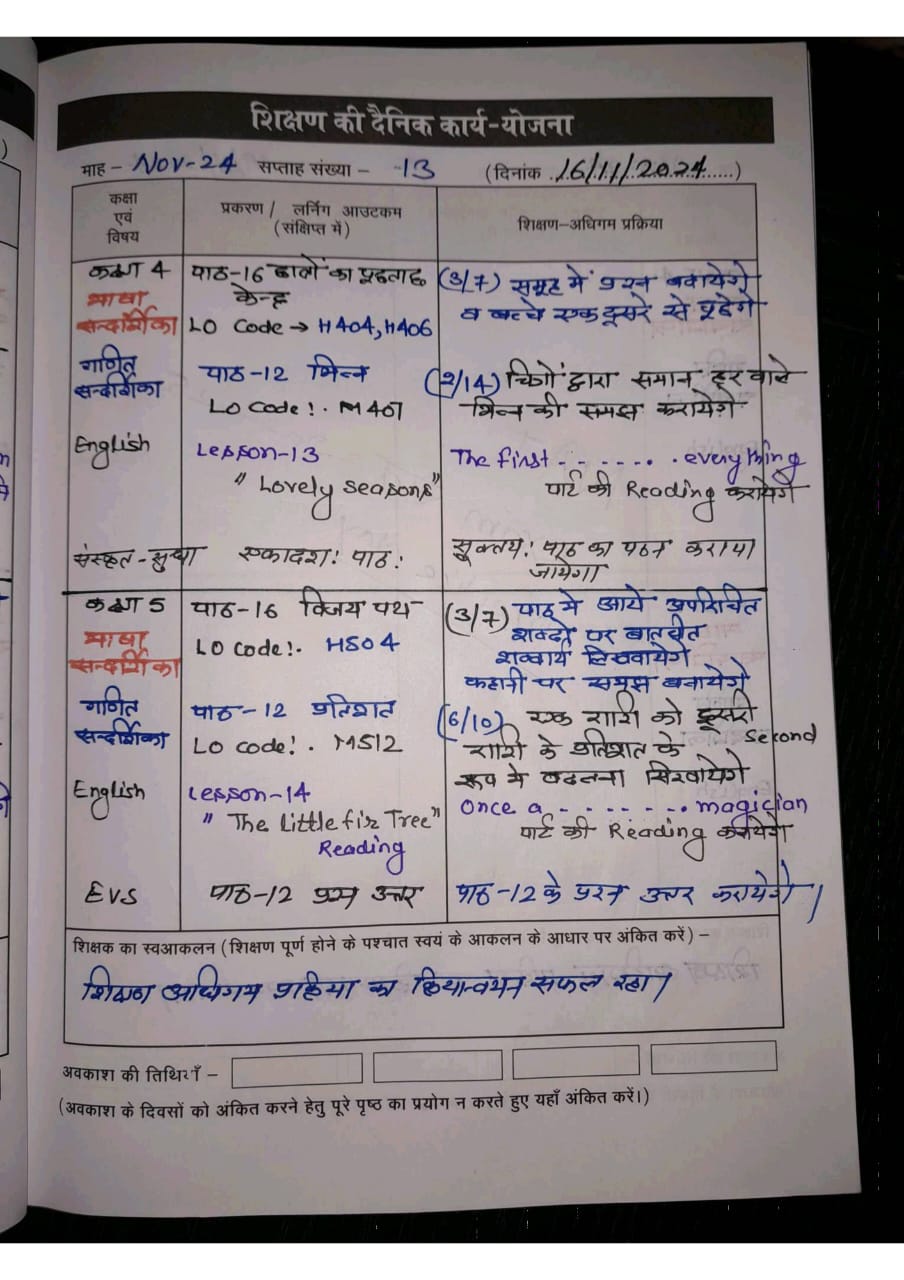 शिक्षण की दैनिक कार्य-योजना
माह – Nov-24 सप्ताह संख्या – 13 (दिनांक 16/11/2024......)
कक्षा एवं विषय
प्रकरण / लर्निंग आउटकम (संक्षिप्त में)
शिक्षण–अधिगम प्रक्रिया
कक्षा 4
भाषा
सन्दर्शिका
पाठ-16 का
केन्द्र
LO Code → H404, H406
(3/7) समूह में प्रश्न बनवायेगे
व बच्चे एक दूसरे से पूछेगे
गणित
सन्दर्शिका
पाठ-12 भिन्न
LO Code!. M401
(2/14) चित्रों द्वारा समान हर वाले
भिन्न की समझ करायेगे
English
Lesson-13
"Lovely Seasons"
The first - - - - - - - everything
पार्ट की Reading करायेगे
संस्कृत - सुधा
एकादश: पाठ:
पाठ का पठन कराया
जायेगा
कक्षा 5
भाषा
सन्दर्शिका
पाठ-16 विजय पथ
LO Code!. H504
(3/7) पाठ मे आये अपरिचित
शब्दों पर बातचीत
शब्दार्थ लिखवायेगे
कहानी पर समझ बनवायेगे
गणित
सन्दर्शिका
पाठ-12 प्रतिशत
LO Code!. M512
(6/10) एक राशि को दूसरी
राशि के प्रतिशत के second
रूप मे बदलना सिखायेगे
English
Lesson-14
"The Little fir Tree"
Reading
Once a - - - - - - - - magician
पार्ट की Reading करायेगे
EVS
पाठ-12 प्रश्न उत्तर
पाठ-12 के प्रश्न उत्तर करायेगे।
शिक्षक का स्वआकलन (शिक्षण पूर्ण होने के पश्चात स्वयं के आकलन के आधार पर अंकित करें) –
शिक्षण अधिगम प्रक्रिया का क्रियान्वयन सफल रहा।
अवकाश की तिथियाँ –
(अवकाश के दिवसों को अंकित करने हेतु पूरे पृष्ठ का प्रयोग न करते हुए यहाँ अंकित करें।)